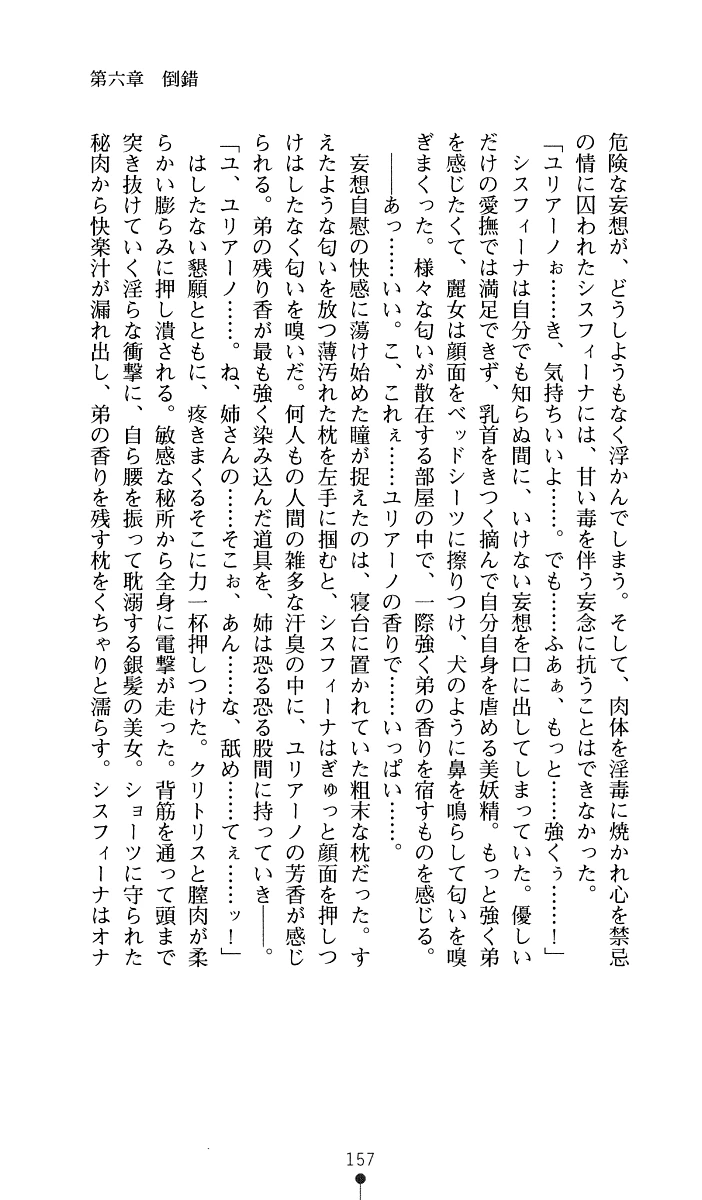 第六章　倒錯
危険な妄想が、どうしようもなく浮かんでしまう。そして、肉体を淫毒に焼かれ心を禁忌
の情に囚われたシスフィーナには、甘い毒を伴う妄念に抗うことはできなかった。
「ユリアーノぉ……き、気持ちいいよ……。でも……ふあぁ、もっと……強くぅ……！」
シスフィーナは自分でも知らぬ間に、いけない妄想を口に出してしまっていた。優しい
だけの愛撫では満足できず、乳首をきつく摘んで自分自身を虐める美妖精。もっと強く弟
を感じたくて、麗女は顔面をベッドシーツに擦りつけ、犬のように鼻を鳴らして匂いを嗅
ぎまくった。様々な匂いが散在する部屋の中で、一際強く弟の香りを宿すものを感じる。
――あっ……いい。こ、これぇ……ユリアーノの香りで……いっぱい……。
妄想自慰の快感に蕩け始めた瞳が捉えたのは、寝台に置かれていた粗末な枕だった。す
えたような匂いを放つ薄汚れた枕を左手に掴むと、シスフィーナはぎゅっと顔面を押しつ
けはしたなく匂いを嗅いだ。何人もの人間の雑多な汗臭の中に、ユリアーノの芳香が感じ
られる。弟の残り香が最も強く染み込んだ道具を、姉は恐る恐る股間に持っていき――。
「ユ、ユリアーノ……。ね、姉さんの……そこぉ、あん……な、舐め……てぇ……ッ！」
はしたない懇願とともに、疼きまくるそこに力一杯押しつけた。クリトリスと膣肉が柔
らかい膨らみに押し潰される。敏感な秘所から全身に電撃が走った。背筋を通って頭まで
突き抜けていく淫らな衝撃に、自ら腰を振って耽溺する銀髪の美女。ショーツに守られた
秘肉から快楽汁が漏れ出し、弟の香りを残す枕をくちゃりと濡らす。シスフィーナはオナ
157